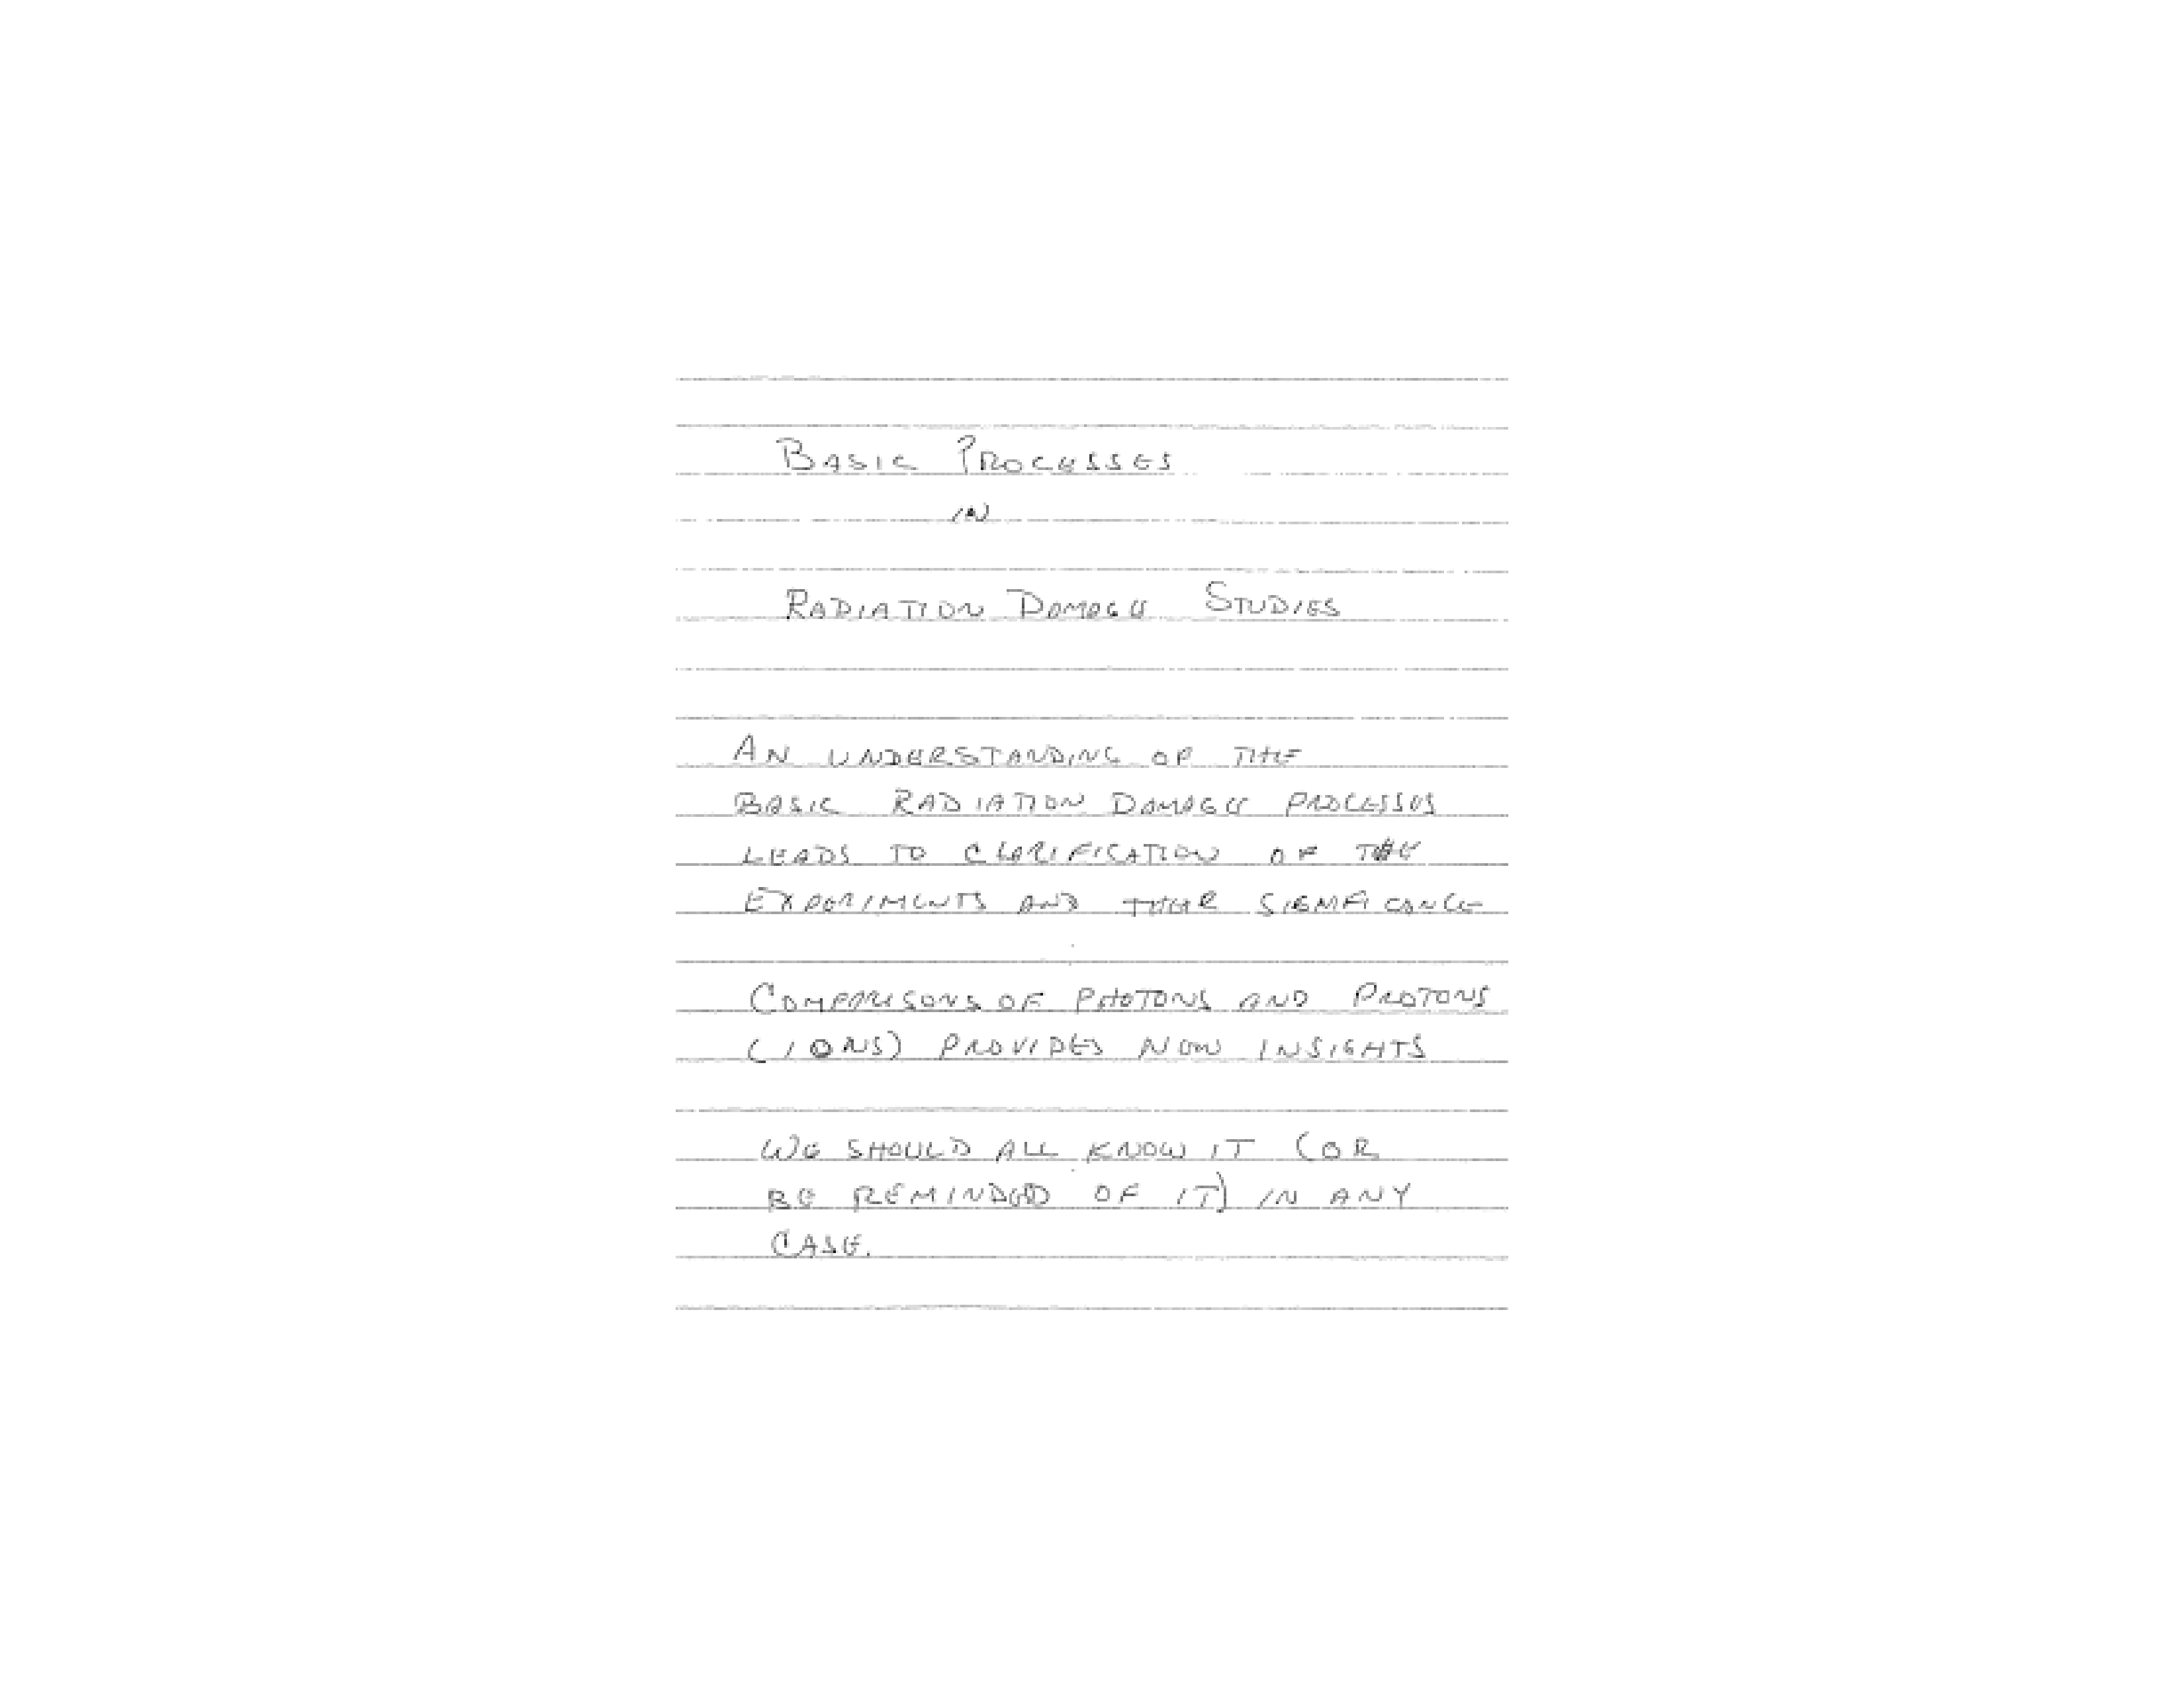 BASIC PROCESSES
IN
RADIATION DAMAGE STUDIES
AN UNDERSTANDING OF THE
BASIC RADIATION DAMAGE PROCESSES
LEADS TO CLARIFICATION OF THE
EXPERIMENTS AND THEIR SIGNIFICANCE
COMPARISONS OF PHOTONS AND PROTONS
(IONS) PROVIDES NEW INSIGHTS
WE SHOULD ALL KNOW IT (OR
BE REMINDED OF IT) IN ANY
CASE.